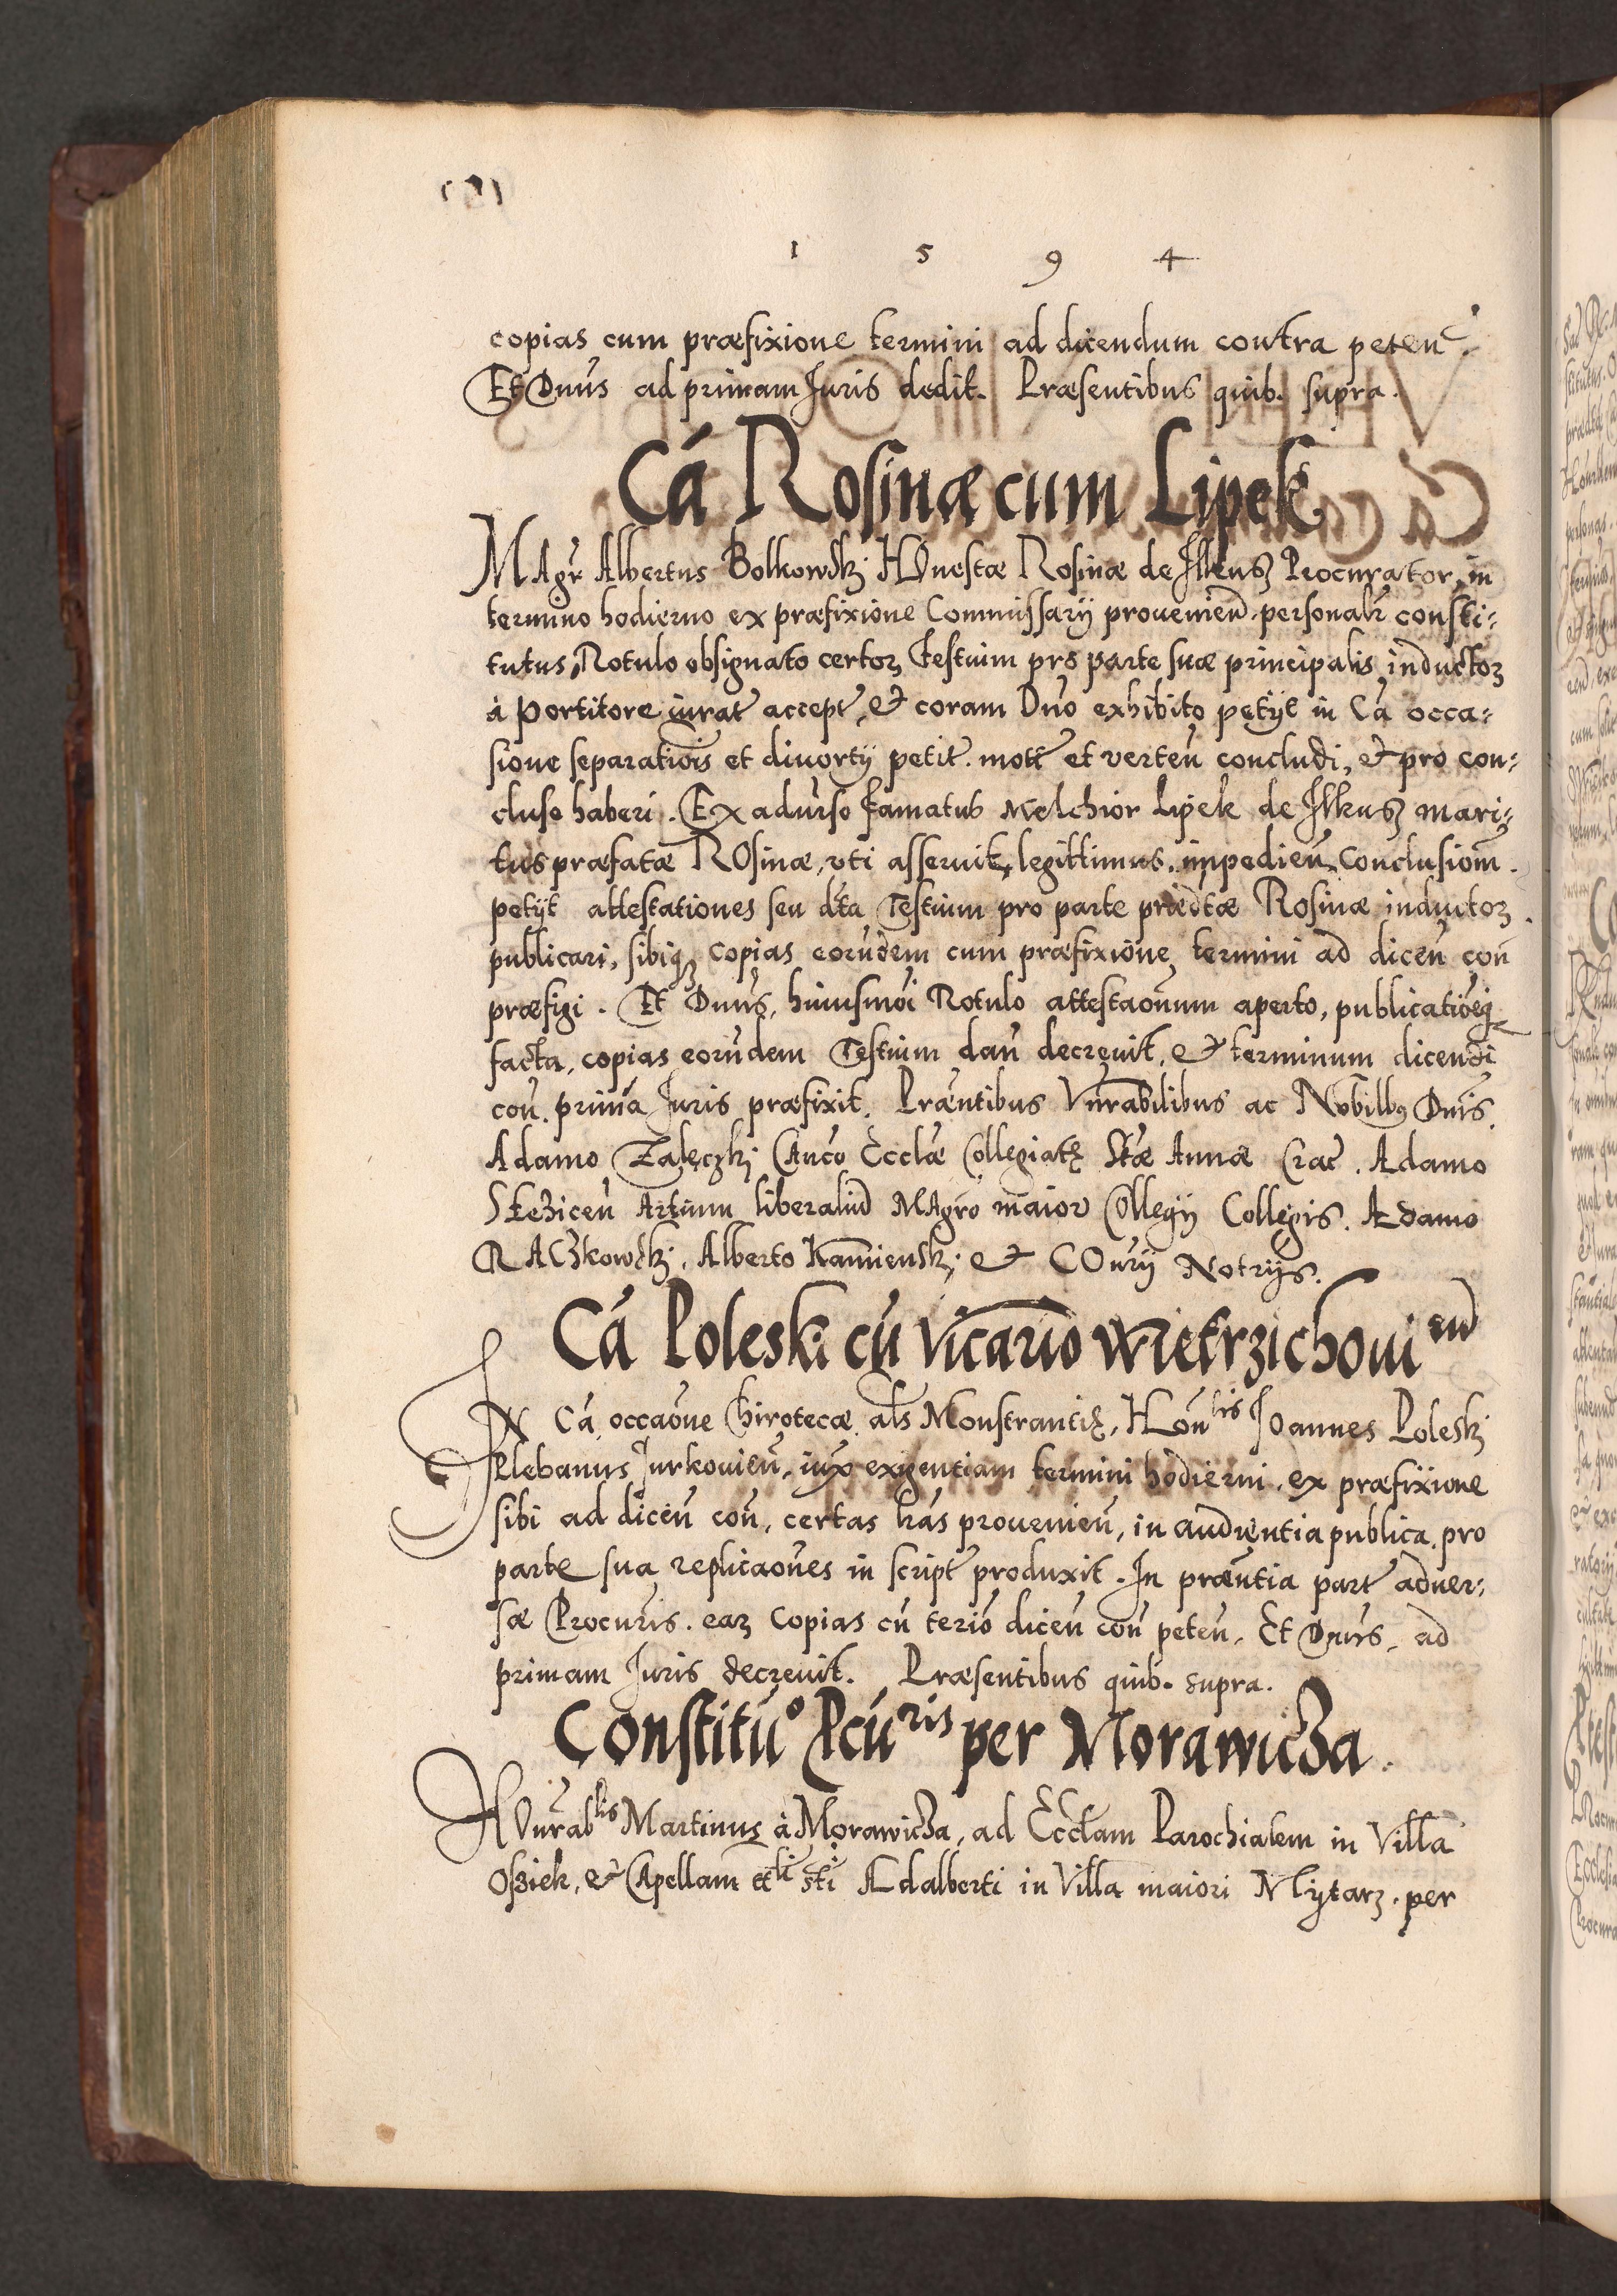 1 5 9 4
copias cum præfixione termini ad dicendum contra peten.
Et Dnus ad primam Juris dedit. Præsentibus quib. supra.
Cá Rosinæ cum Lipek
MAgr Albertus Bolkowskj HOnestæ Rosinæ de Ilkusz Procurator, in
termino hodierno ex præfixione Commissarÿ proueniend. personalr consti-
tutus, Rotulo obsignato certoꝝ Testium pro parte suæ principalis inductoꝝ
à portitore iurat accept, et coram Dno exhibito petÿt in Cá occa-
sione separatiois et diuortÿ petit. mott et verten concludi, et pro con-
cluso haberi. Ex aduerso Famatus Melchior Lipek de Ilkusz mari-
tus præfatæ ROsinæ, vti asseruit, legittimus, impedien Conclusiom.
petÿt attestationes seu dcta Testium pro parte prædtæ Rosinæ inductoꝝ.
publicari, sibiqꝫ copias eorundem cum præfixione termini ad dicen con
præfigi. Et Dnus, huiusmoi Rotulo attestaonum aperto, publicationeqꝫ
facta, copias eorundem Testium dan decreuit, et terminum dicendi
con. prima Juris præfixit. Præntibus Vnrabilibus ac Nobilbꝰ Dnis.
Adamo Zalęczkj CAnco Ecclæ Collegiatę Stæ Annæ Crac. Adamo
Stezicen Artium liberaliu MAgro maior Collegÿ Collegis. Adamo
RACzkowskj, Alberto Kamienskj et COnrÿ Notrÿs.
Cá Poleski cū Vicario Wietrzichouien
IN Cá occaone Chirotecæ als Monstrantię, HOnlis Joannes Poleskj
Plebanus Jurkouien, iux exigentiam termini hodierni, ex præfixione
sibi ad dicen con, certas lras prouenien, in audientia publica, pro
parte sua replicaones in script produxit. In præntia part aduer-
sæ Procuris. eaꝝ copias cū terio dicen con peten, Et Dnus, ad
primam Juris decreuit. Præsentibus quib. supra.
Constituo Pcuris per Morawicza.
HOnrablis Martinus à Morawicza, ad Ecclam Parochialem in Villa
Osziek, et CApellam sti Adalberti in Villa maiori Mlÿtarz. per